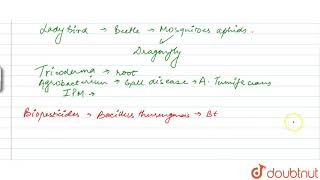 Lady bird → Beetle → Mosquitoes aphids.
Dragonfly
Tricoderma → root
Agrobacterium → Gall disease → A. Tumifecians
IPM →
Biopesticides → Bacillus thurengensis → Bt
doubtnut